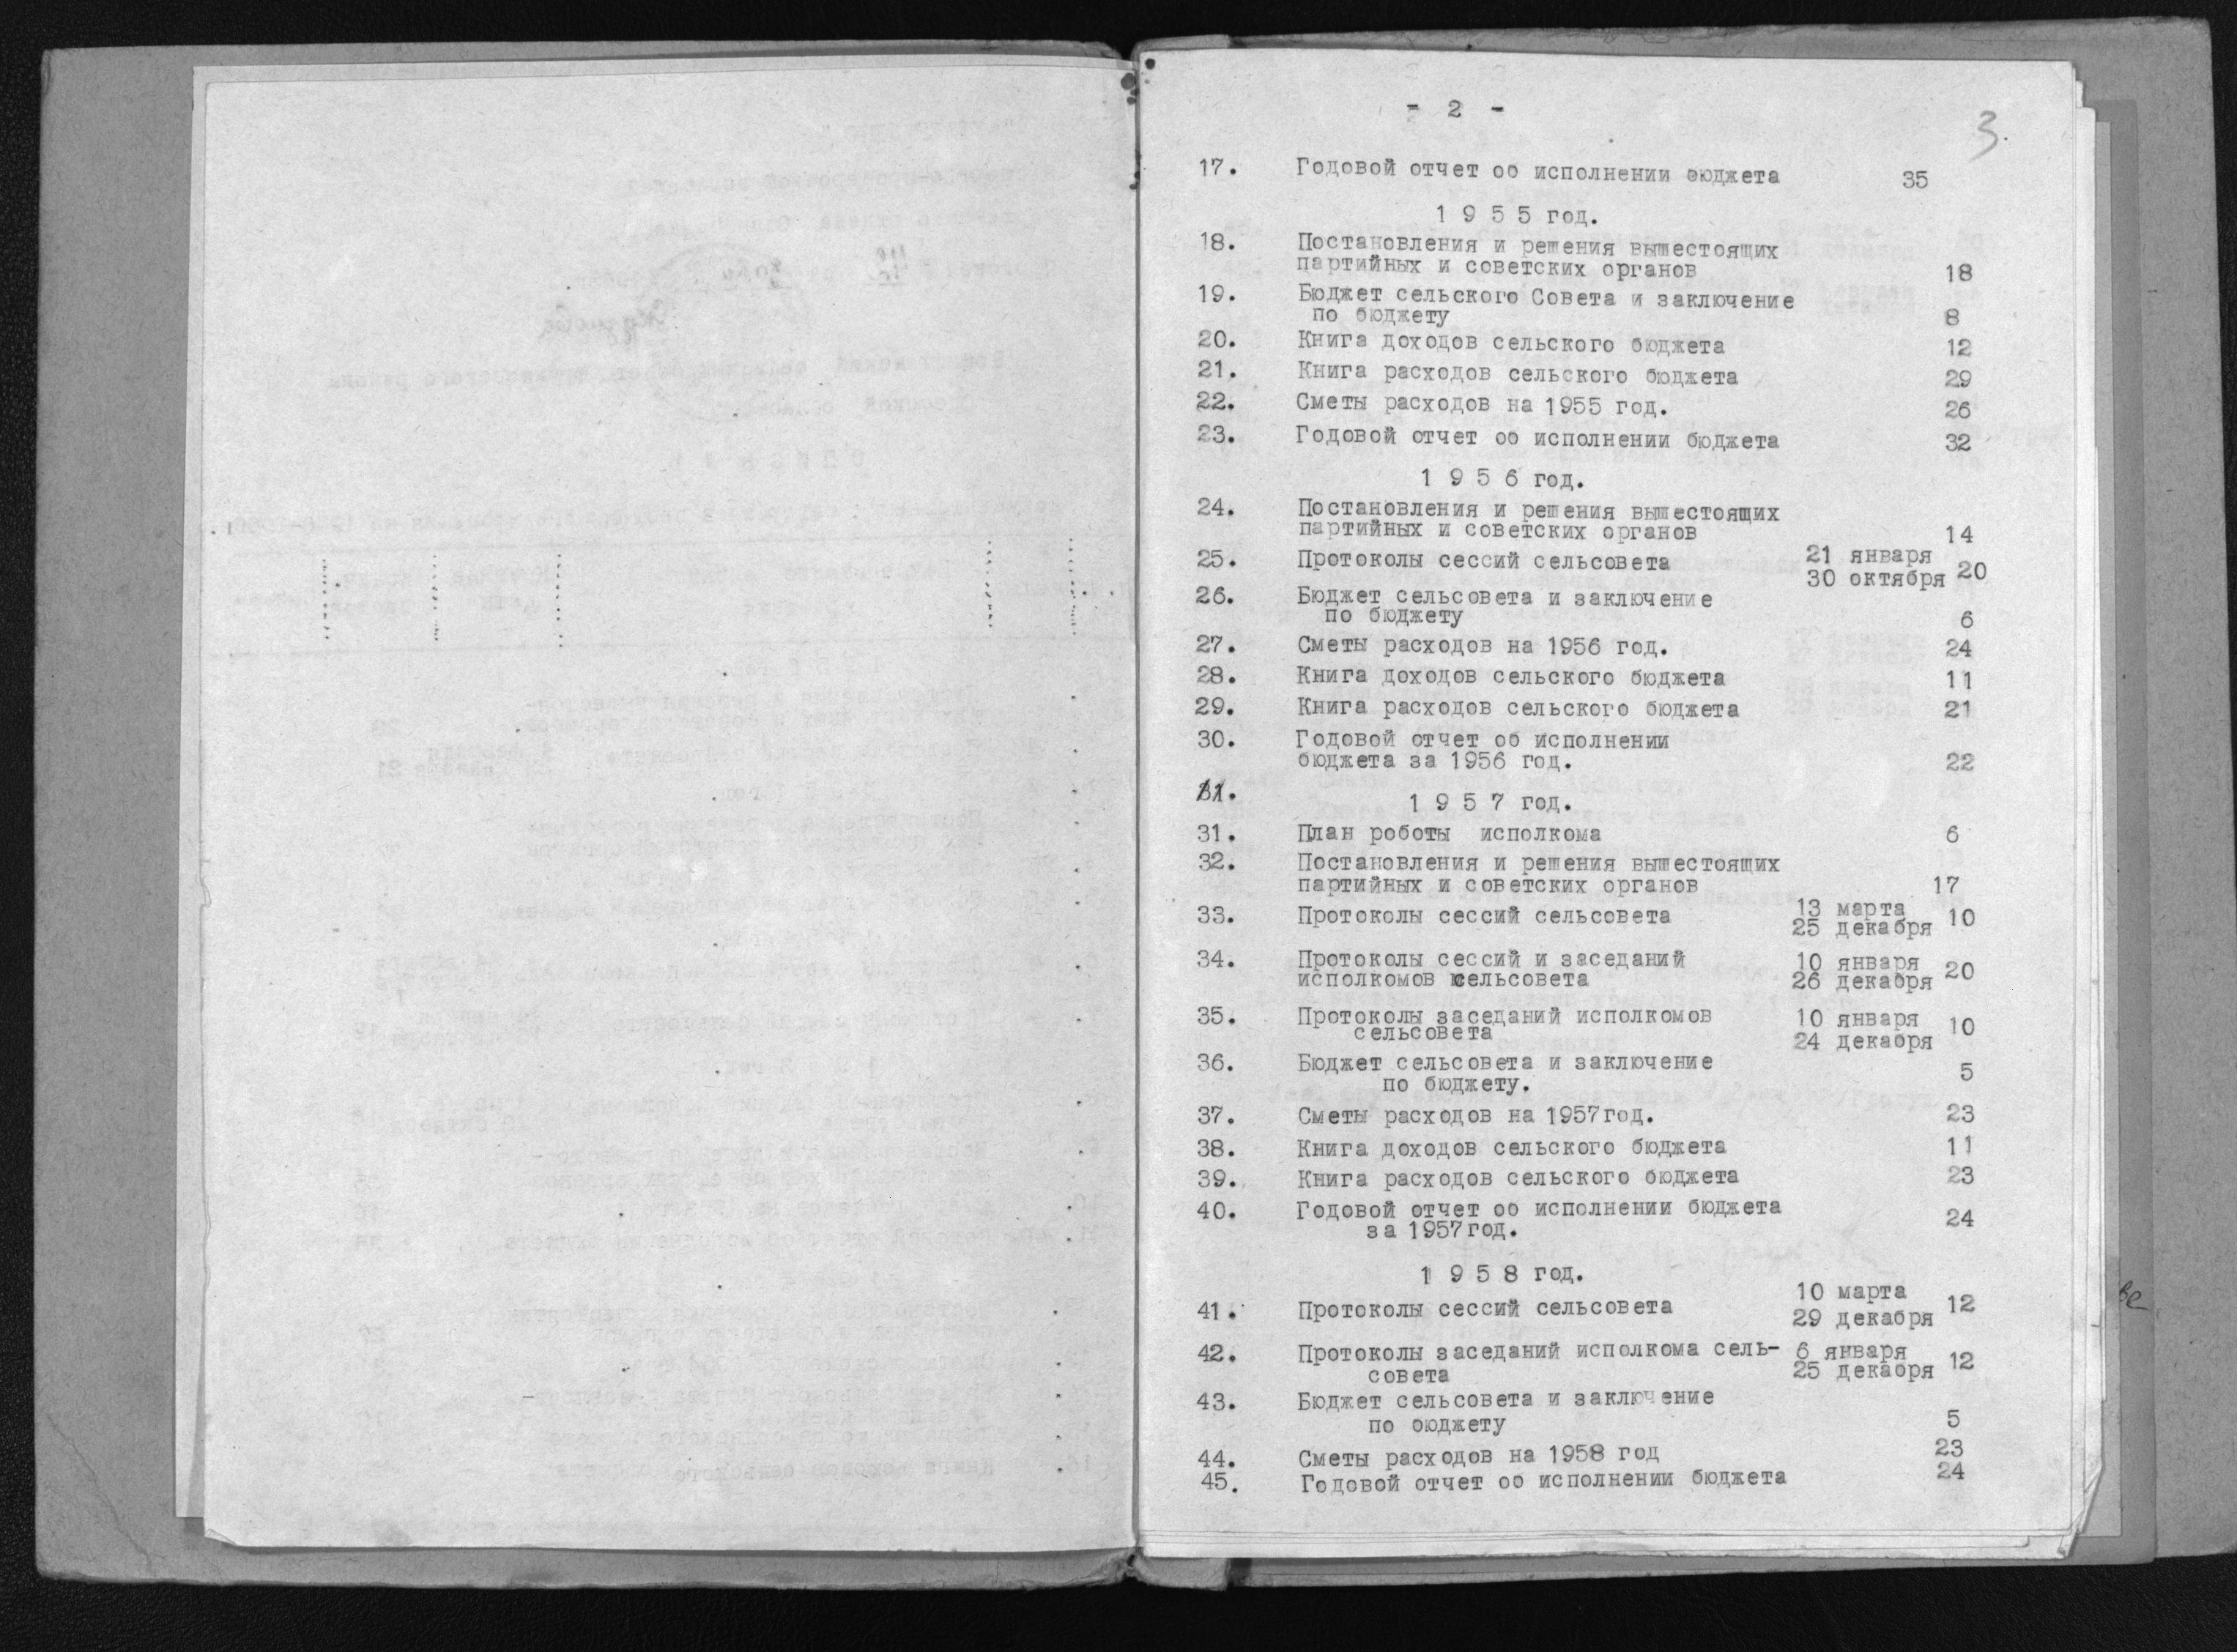 - 2 -
3.
17. Годовой отчет об исполнении бюджета 35
1 9 5 5 год.
18. Постановления и решения вышестоящих
партийных и советских органов 18
19. Бюджет сельского Совета и заключение
по бюджету 8
20. Книга доходов сельского бюджета 12
21. Книга расходов сельского бюджета 29
22. Сметы расходов на 1955 год. 26
23. Годовой отчет об исполнении бюджета 32
1 9 5 6 год.
24. Постановления и решения вышестоящих
партийных и советских органов 14
25. Протоколы сессий сельсовета 21 января
30 октября 20
26. Бюджет сельсовета и заключение
по бюджету 6
27. Сметы расходов на 1956 год. 24
28. Книга доходов сельского бюджета 11
29. Книга расходов сельского бюджета 21
30. Годовой отчет об исполнении
бюджета за 1956 год. 22
31.
1 9 5 7 год.
31. План роботы исполкома 6
32. Постановления и решения вышестоящих
партийных и советских органов 17
33. Протоколы сессий сельсовета 13 марта
25 декабря 10
34. Протоколы сессий и заседаний 10 января
исполкомов сельсовета 26 декабря 20
35. Протоколы заседаний исполкомов 10 января
сельсовета 24 декабря 10
36. Бюджет сельсовета и заключение
по бюджету. 5
37. Сметы расходов на 1957год. 23
38. Книга доходов сельского бюджета 11
39. Книга расходов сельского бюджета 23
40. Годовой отчет об исполнении бюджета
за 1957год. 24
1 9 5 8 год.
41. Протоколы сессий сельсовета 10 марта
29 декабря 12
42. Протоколы заседаний исполкома сель- 6 января
совета 25 декабря 12
43. Бюджет сельсовета и заключение
по бюджету 5
44. Сметы расходов на 1958 год 23
45. Годовой отчет об исполнении бюджета 24